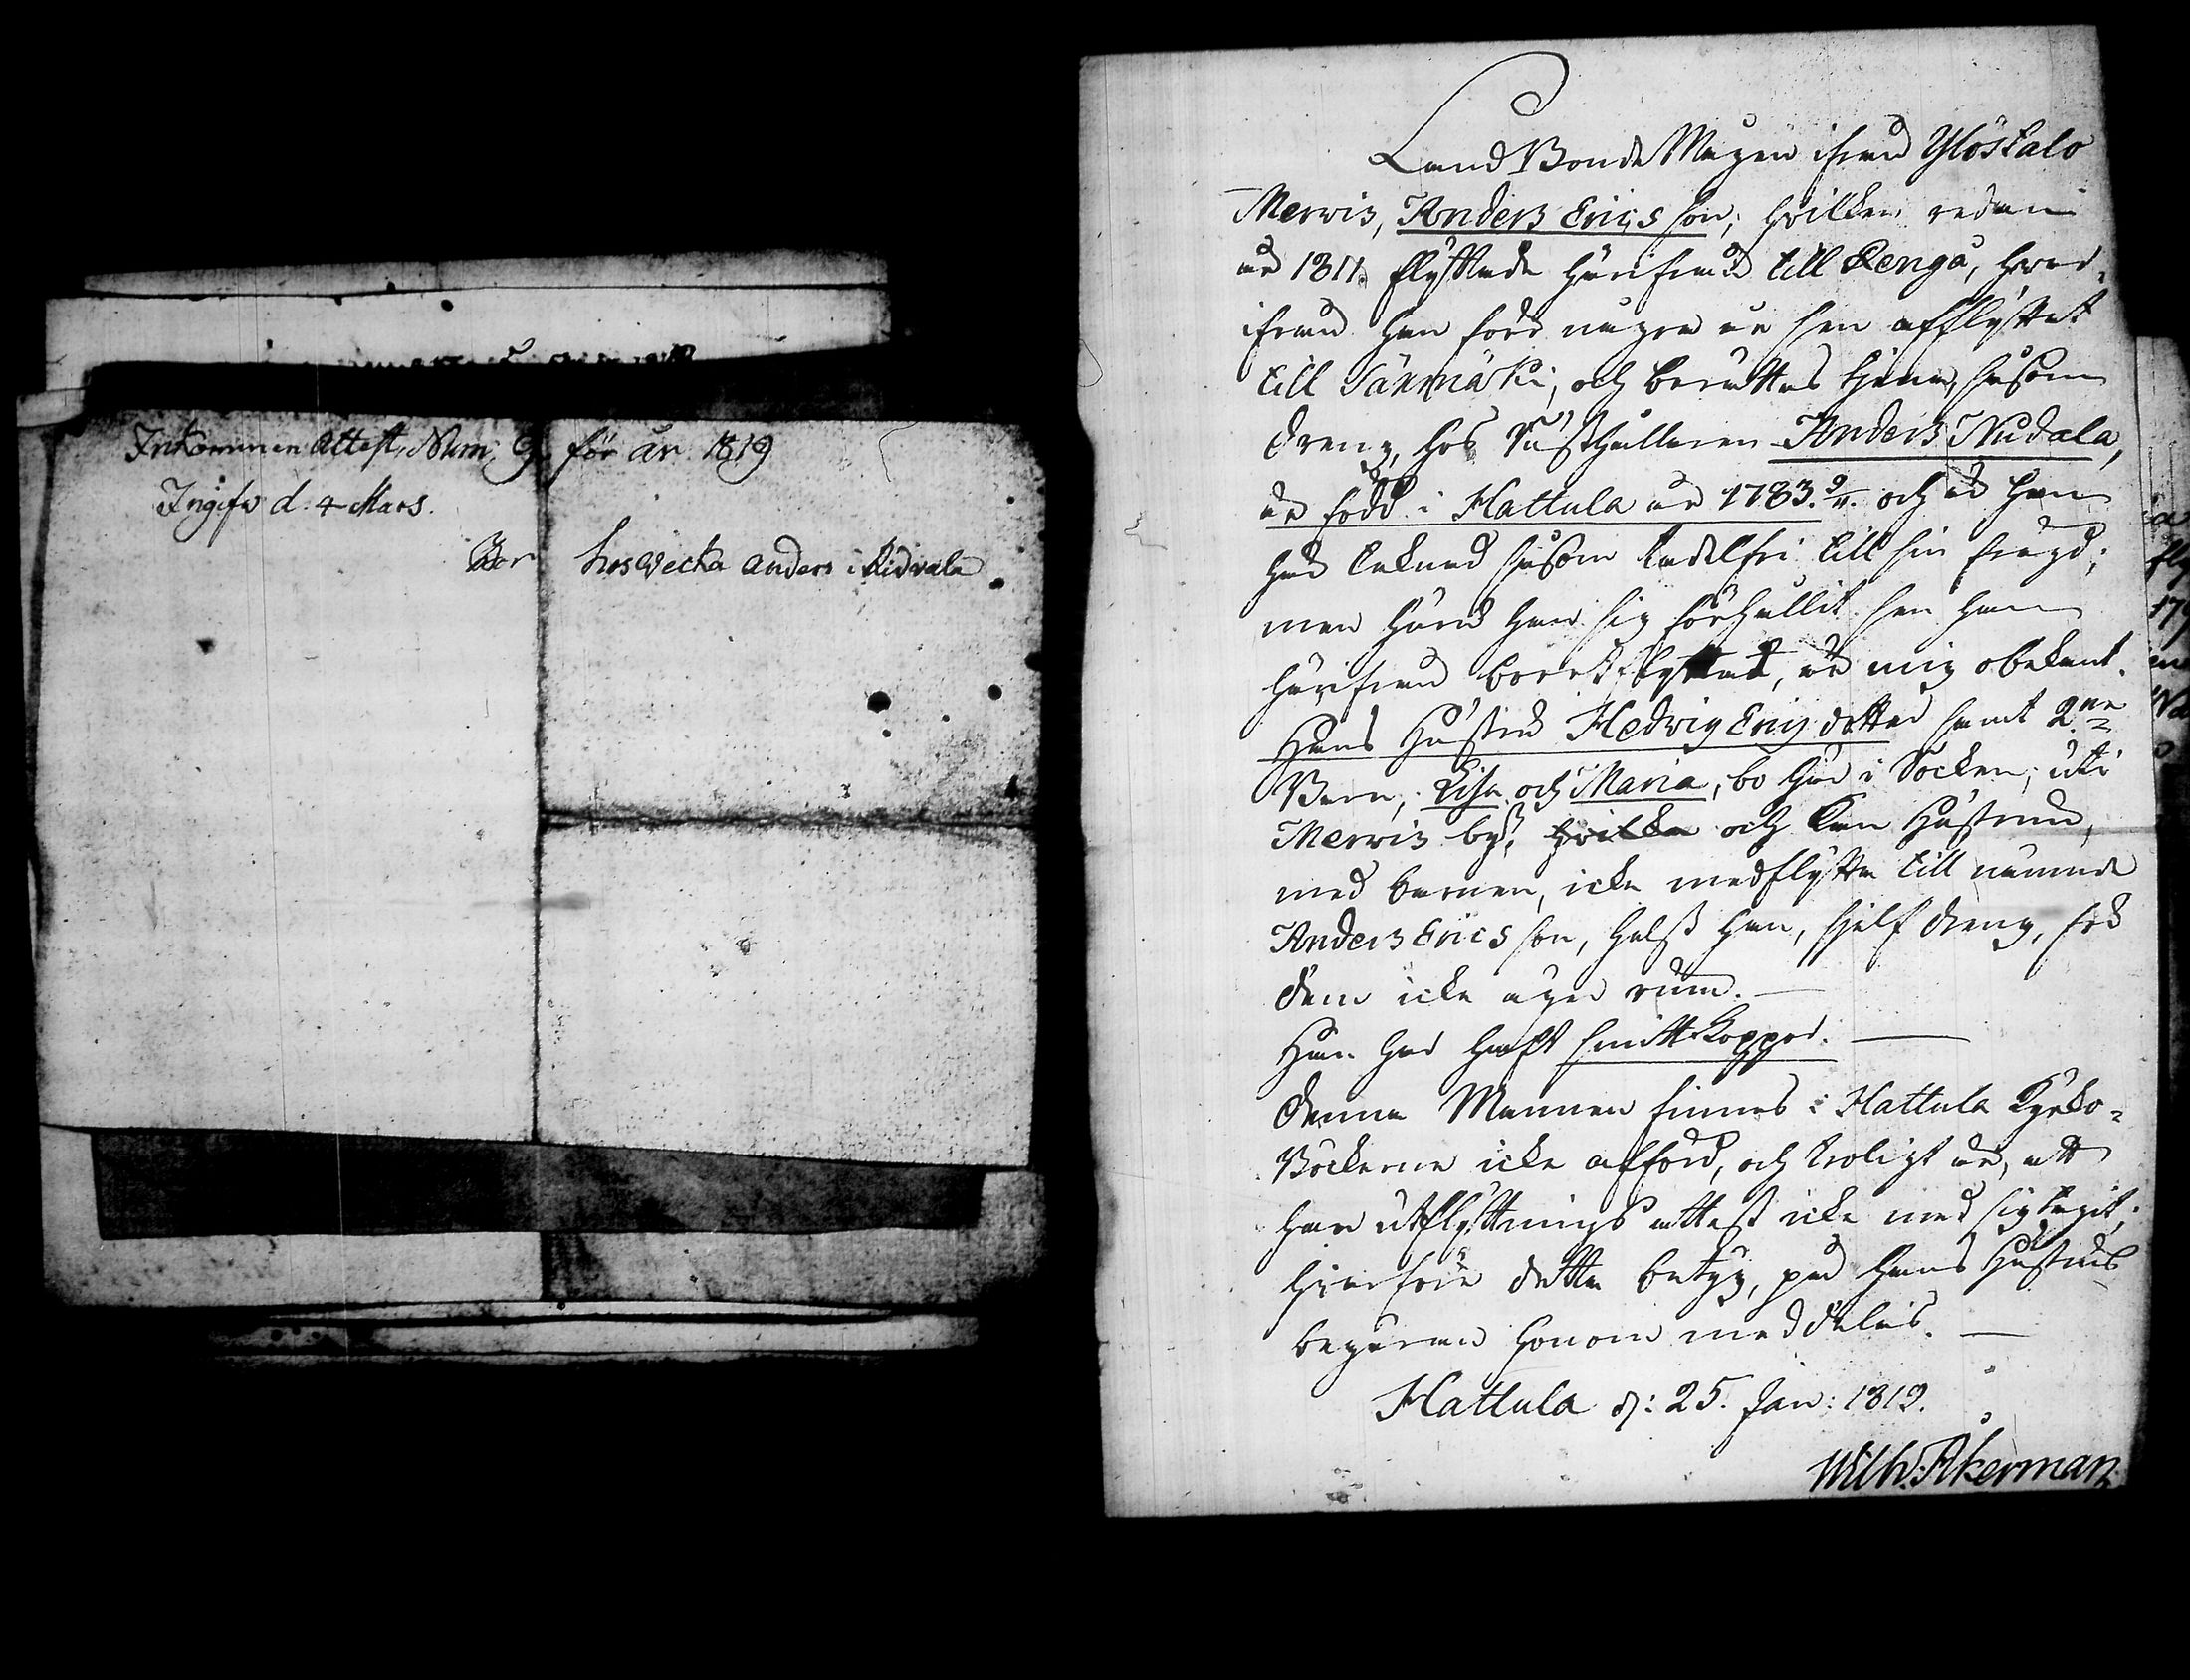 Inkommen Attest, Num: 9. för år 1819
Ingifv. d: 4 Mars.
Bor hos Vecka Anders i Ridvala
LandBonde Mågen ifrån Ylöstalo
Mervis, Anders Ericsson, hvilken redan
år 1811 flyttade härifrån till Renga, hvar-
ifrån han förr några år sen afflyttat
till Jänmäki, och berättas tjena, såsom
dreng, hos Rusthållaren Anders Nudala,
är född i Hattula år 1783. 9/11. och är han
här teknad såsom ladelfri till sin frägd;
men huru han sig förhållit sen han
härifrån bortflyttat, är mig obekant.
Hans Hustru Hedvig Ericsdotter samt 2ne
Barn, Lisa och Maria, bo här i Socken, uti
Mervis by, hvilka och kan Hustrun,
med barnen, icke medflytta till nämnde
Anders Ericsson, helst han, sjelf dreng, för
dem icke äger rum.
Han har haft smittkoppor.
Denna Mannen finnes i Hattula Kyrko-
Böckerne icke afförd, och troligt är, att
han utflyttnings attest icke med sig tagit,
hvarföre detta betyg, på hans Hustrus
begäran honom meddelas.
Hattula d: 25. Jan: 1819.
Wilh: Åkerman